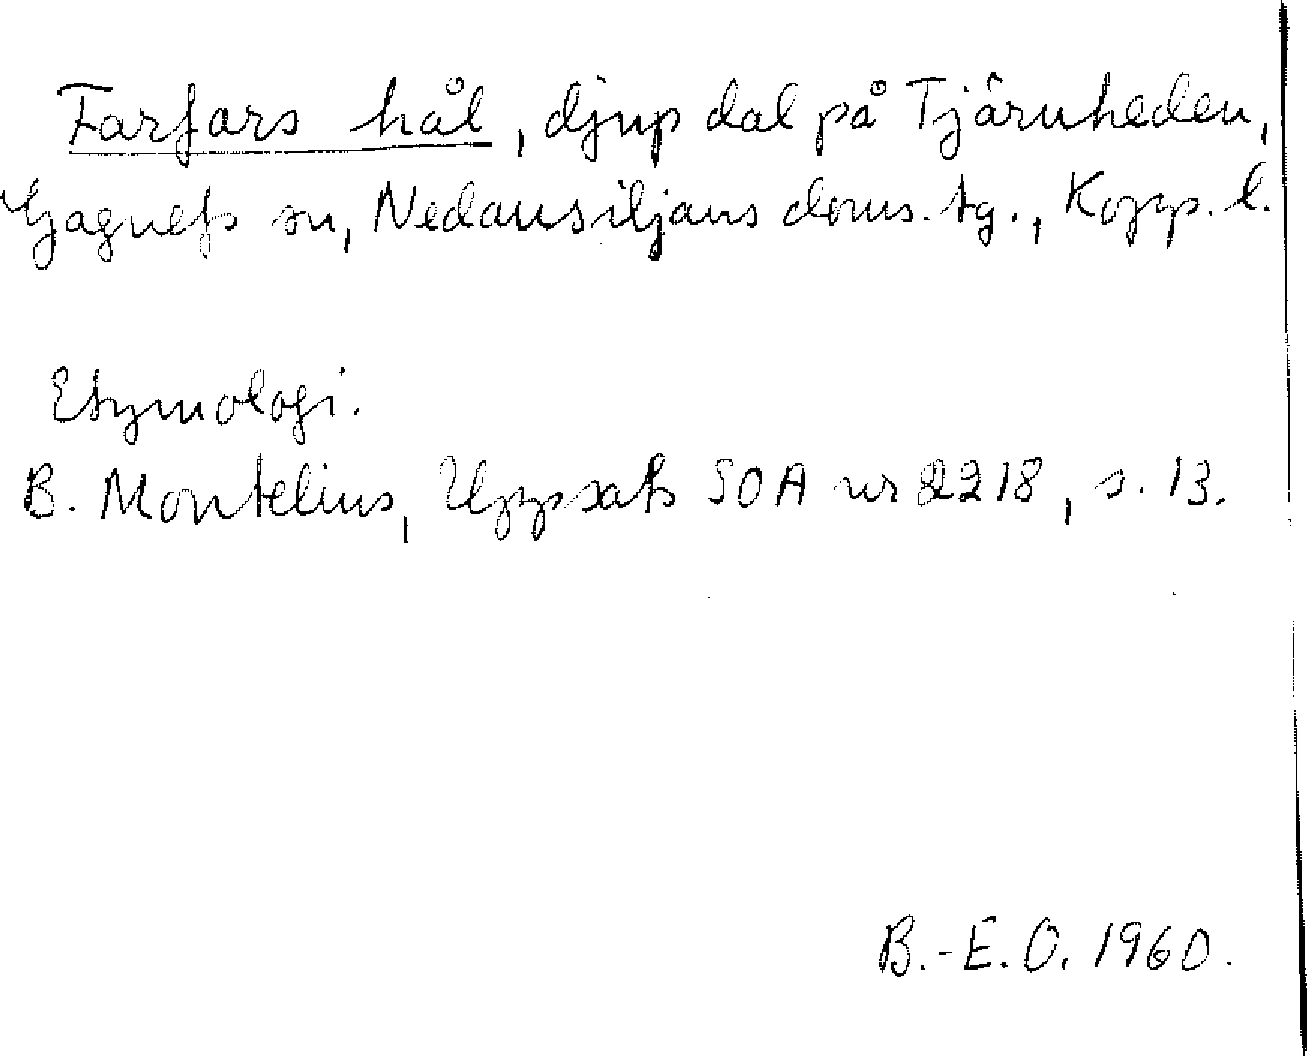 Farfars hål, djup dal på Tjärnheden,
Gagnefs sn, Nedansiljans doms. tg., Kopp. l.
Etymologi.
B. Montelius, Uppsats SOA nr 2218, s. 13.
B.-E.O. 1960.